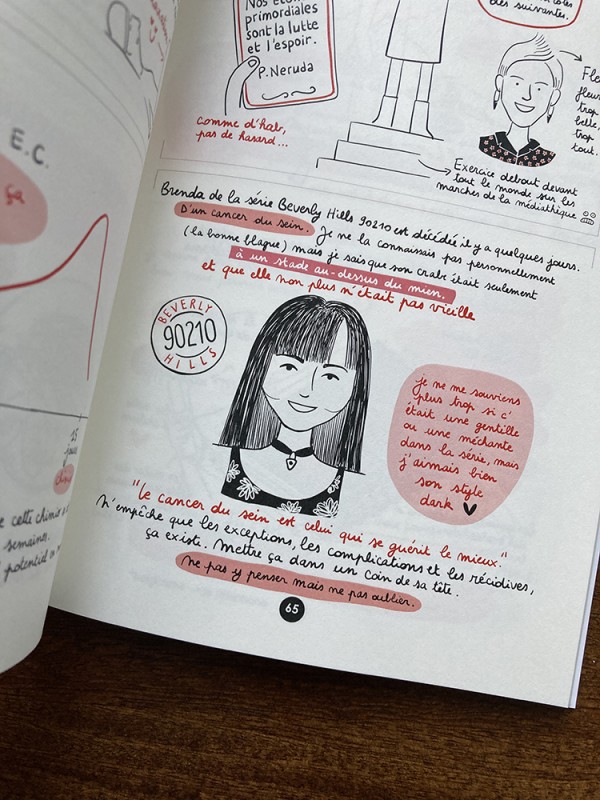 E.C.
ça
15
jours
cette chimio
semaines.
potentiel
Nos étoiles
primordiales
sont la lutte
et l'espoir.
P. Neruda
comme d'hab,
pas de hasard...
des suivantes.
trop
belle,
trop
tout.
Exercice debout devant
tout le monde sur les
marches de la médiathèque
Brenda de la série Beverly Hills 90210 est décédée il y a quelques jours.
D'un cancer du sein. Je ne la connaissais pas personnellement
(la bonne blague) mais je sais que son crabe était seulement
à un stade au-dessus du mien.
et que elle non plus n'était pas vieille
BEVERLY
90210
HILLS
je ne me souviens
plus trop si c'
était une gentille
ou une méchante
dans la série, mais
j'aimais bien
son style
dark
"Le cancer du sein est celui qui se guérit le mieux."
N'empêche que les exceptions, les complications et les récidives,
ça existe. Mettre ça dans un coin de sa tête.
ne pas y penser mais ne pas oublier.
65